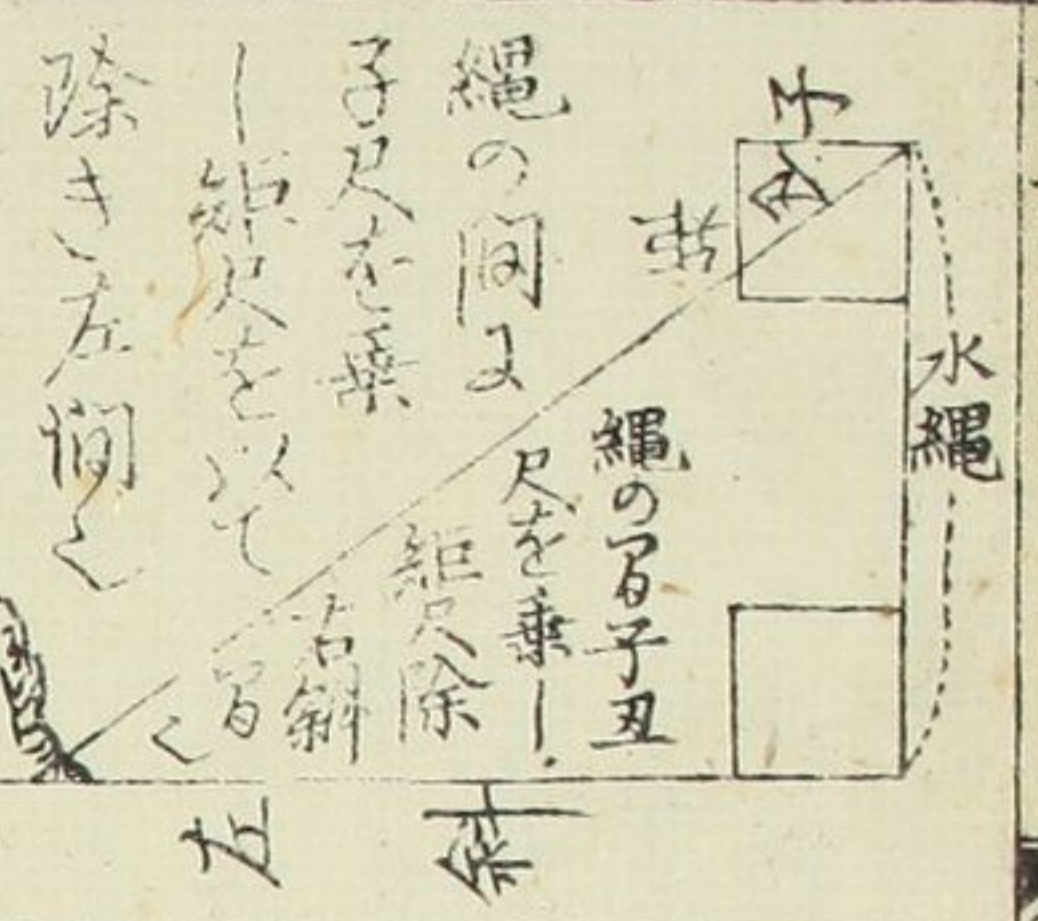 水縄
子
丑
縄の間子丑
尺を乗し
矩尺除
右斜
間く
縄の間に
子尺を乗
し矩尺を以て
除き左間く
左